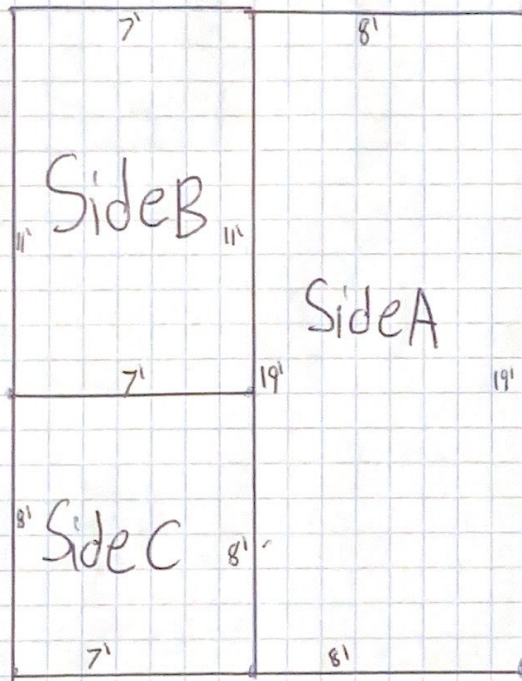 7'
8'
SideB
11'
11'
SideA
7'
19'
19'
8'
SideC
8'
7'
8'